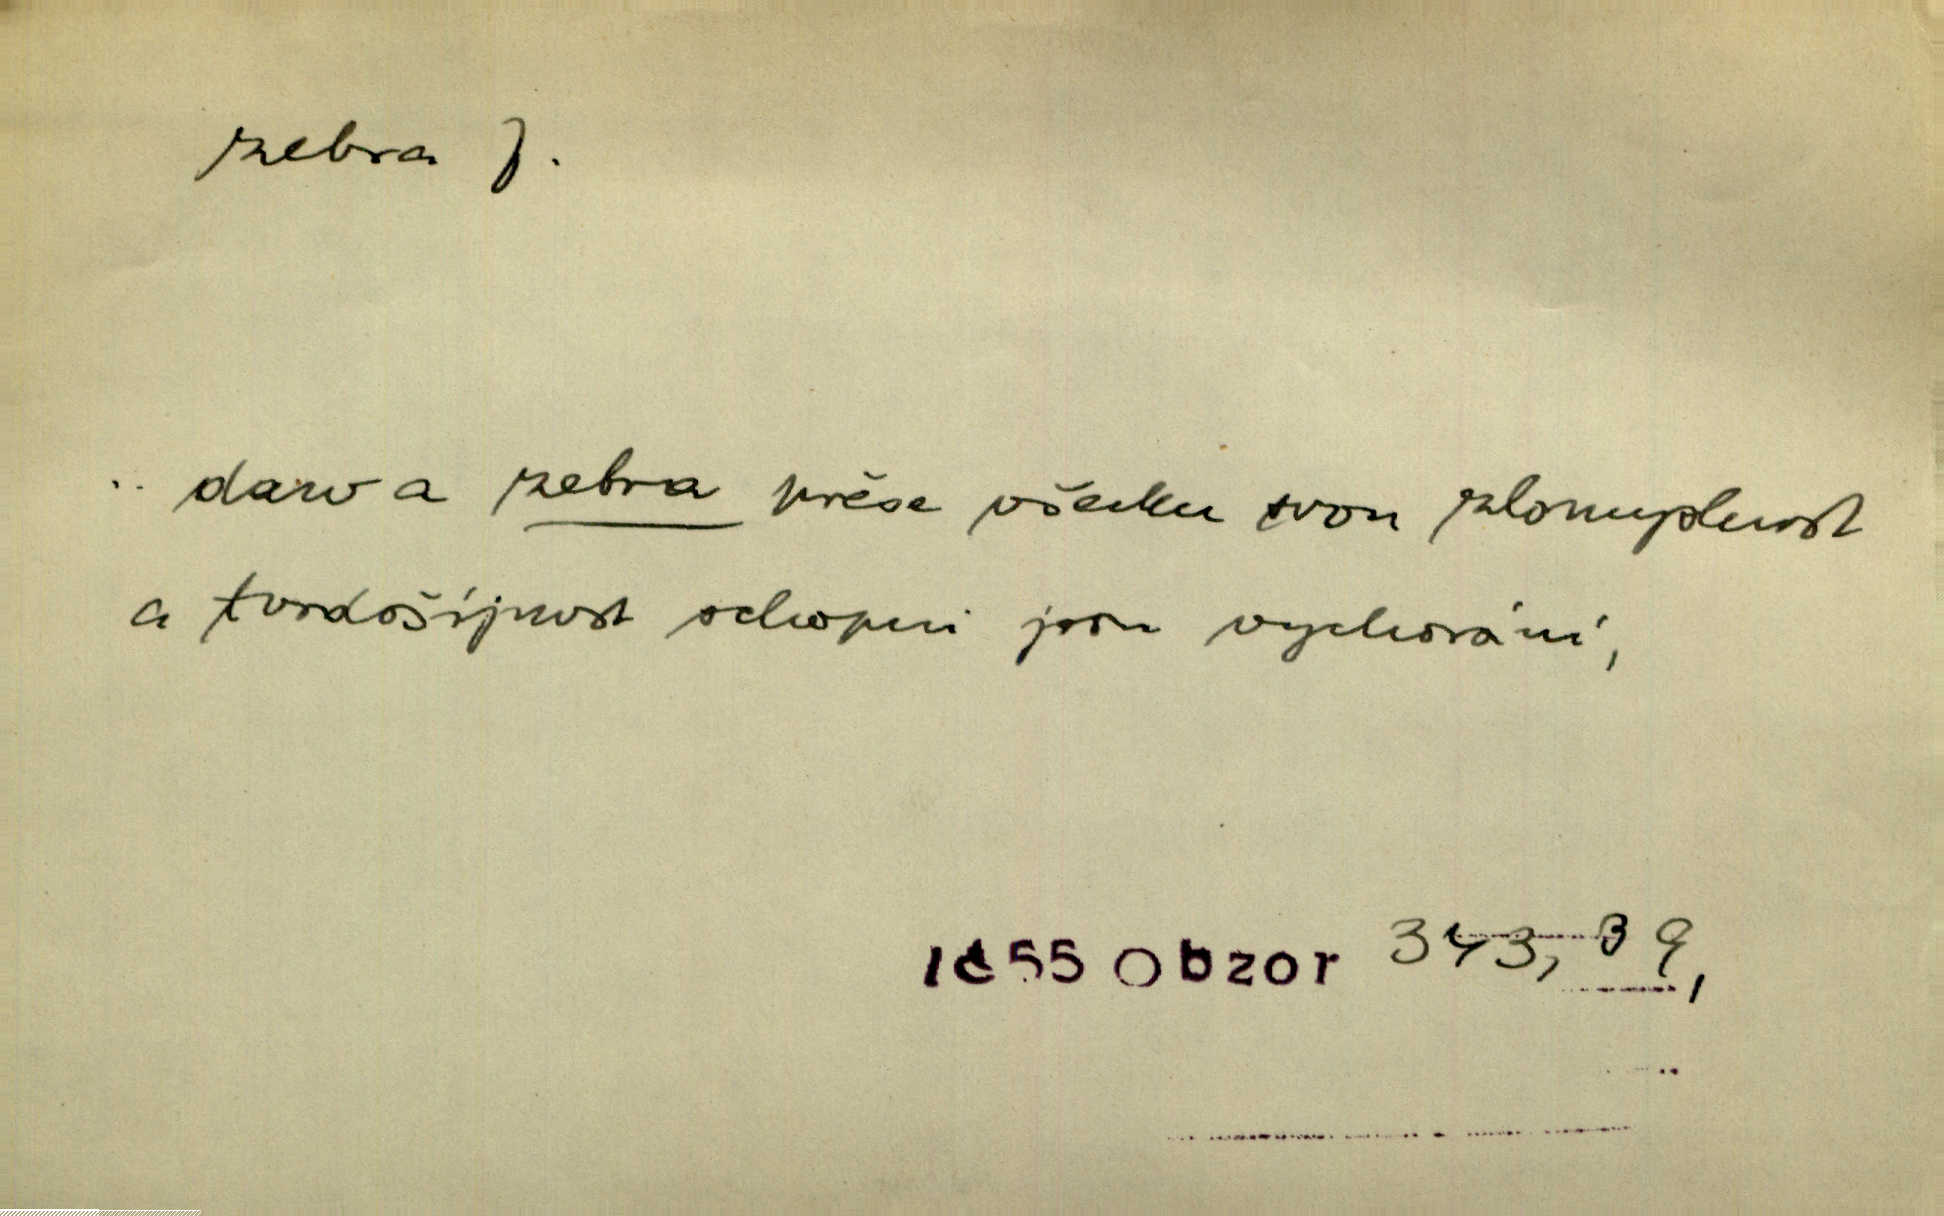 zebra f.
.. dauw a zebra přese všecku svou zlomyslnost
a tvrdošíjnost schopni jsou vychování,
1855 Obzor 343, 39,